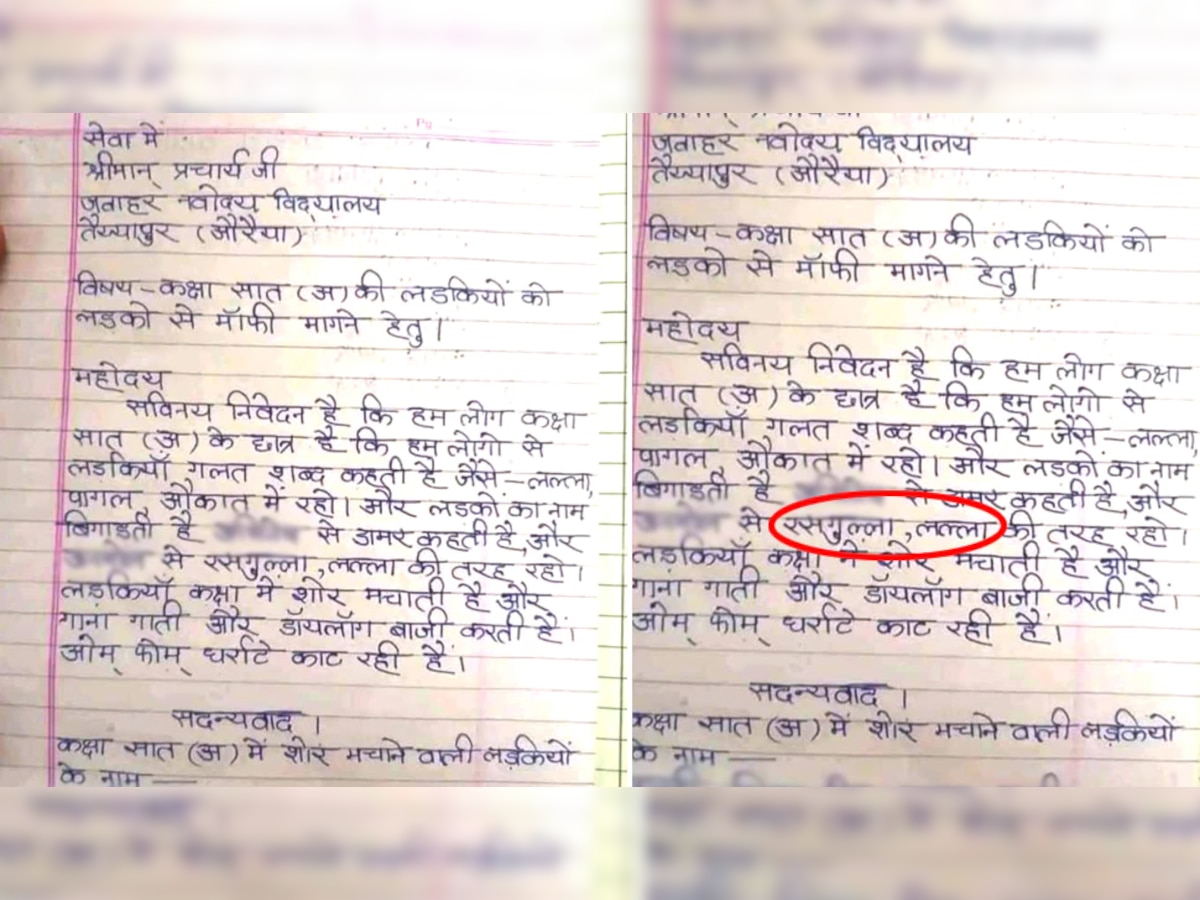 सेवा में
श्रीमान् प्रचार्य जी
जवाहर नवोदय विद्यालय
तैय्यापुर (औरैया)
विषय-कक्षा सात (अ) की लडकियों को
लड़को से मॉफी मागने हेतु।
महोदय
सविनय निवेदन है कि हम लोग कक्षा
सात (अ) के छात्र है कि हम लोगो से
लड़कियाँ गलत शब्द कहती है जैसे-लल्ला,
पागल, औकात में रहो। और लडकों का नाम
बिगाडती है से डामर कहती है, और
से रसगुल्ला, लल्ला की तरह रहो।
लड़कियाँ कक्षा में शोर मचाती है और
गाना गाती और डॉयलॉग बाजी करती हैं।
ओम् फोम् धर्राटे काट रही हैं।
सदन्यवाद।
कक्षा सात (अ) में शोर मचाने वाली लड़कियों
के नाम —
जवाहर नवोदय विद्यालय
तैय्यापुर (औरैया)
विषय-कक्षा सात (अ) की लडकियों को
लड़को से मॉफी मागने हेतु।
महोदय
सविनय निवेदन है कि हम लोग कक्षा
सात (अ) के छात्र है कि हम लोगो से
लड़कियाँ गलत शब्द कहती है जैसे-लल्ला,
पागल, औकात में रहो। और लडकों का नाम
बिगाडती है से डामर कहती है, और
से रसगुल्ला, लल्ला की तरह रहो।
लड़कियाँ कक्षा में शोर मचाती है और
गाना गाती और डॉयलॉग बाजी करती हैं।
ओम् फोम् धर्राटे काट रही हैं।
सदन्यवाद।
कक्षा सात (अ) में शोर मचाने वाली लड़कियों
के नाम —